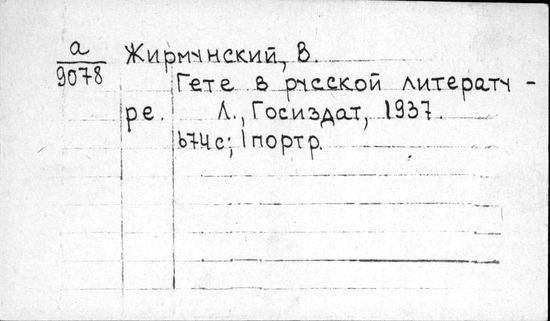 а
9078
Жирмунский, В.
Гете в русской литерату -
ре. Л., Госиздат, 1937.
674с; 1портр.